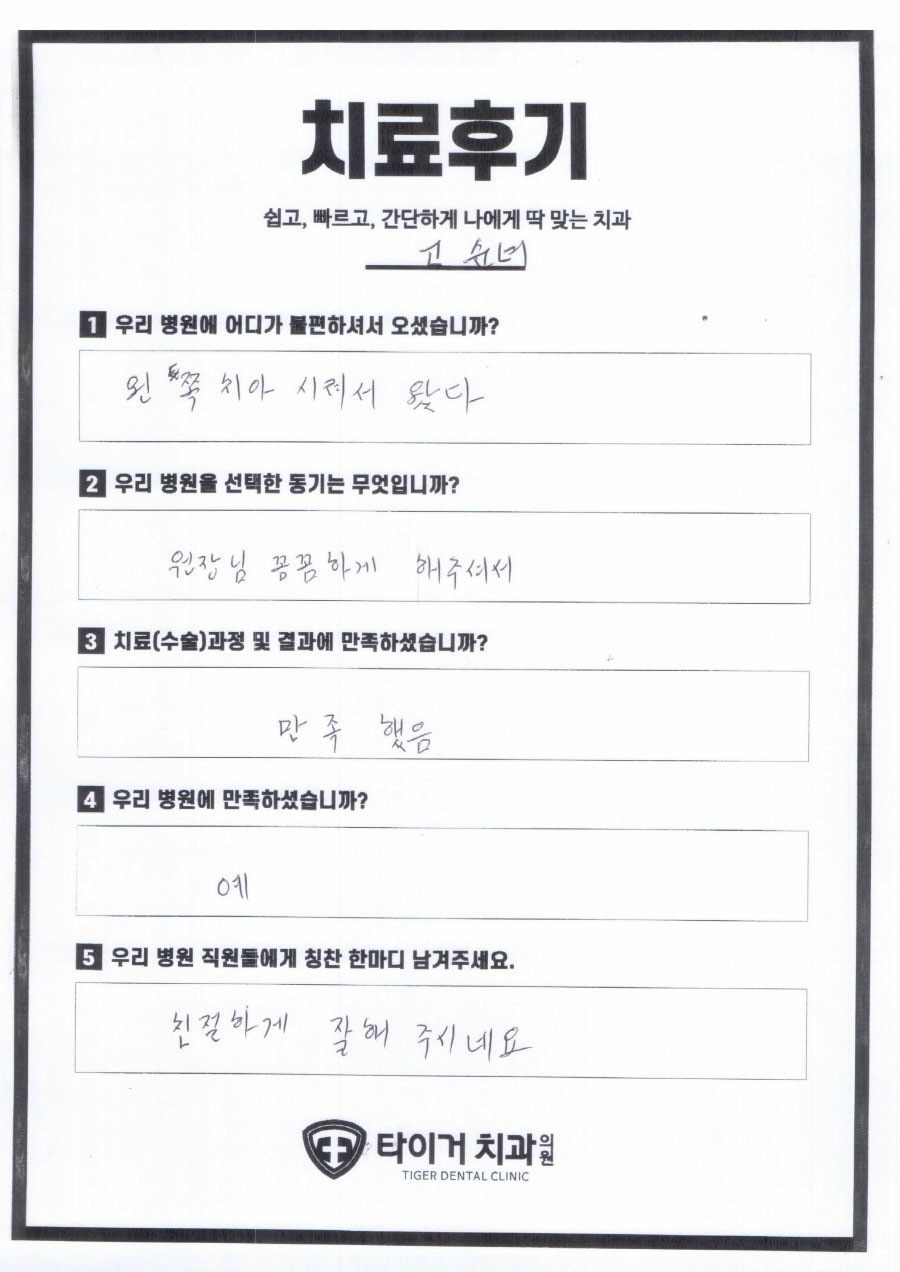 치료후기
쉽고, 빠르고, 간단하게 나에게 딱 맞는 치과
고 순녀
1 우리 병원에 어디가 불편하셔서 오셨습니까?
왼 쪽 치아 시려서 왔다
2 우리 병원을 선택한 동기는 무엇입니까?
원장님 꼼꼼하게 해주셔서
3 치료(수술)과정 및 결과에 만족하셨습니까?
만 족 했음
4 우리 병원에 만족하셨습니까?
예
5 우리 병원 직원들에게 칭찬 한마디 남겨주세요.
친절하게 잘해 주시네요
타이거 치과의원
TIGER DENTAL CLINIC